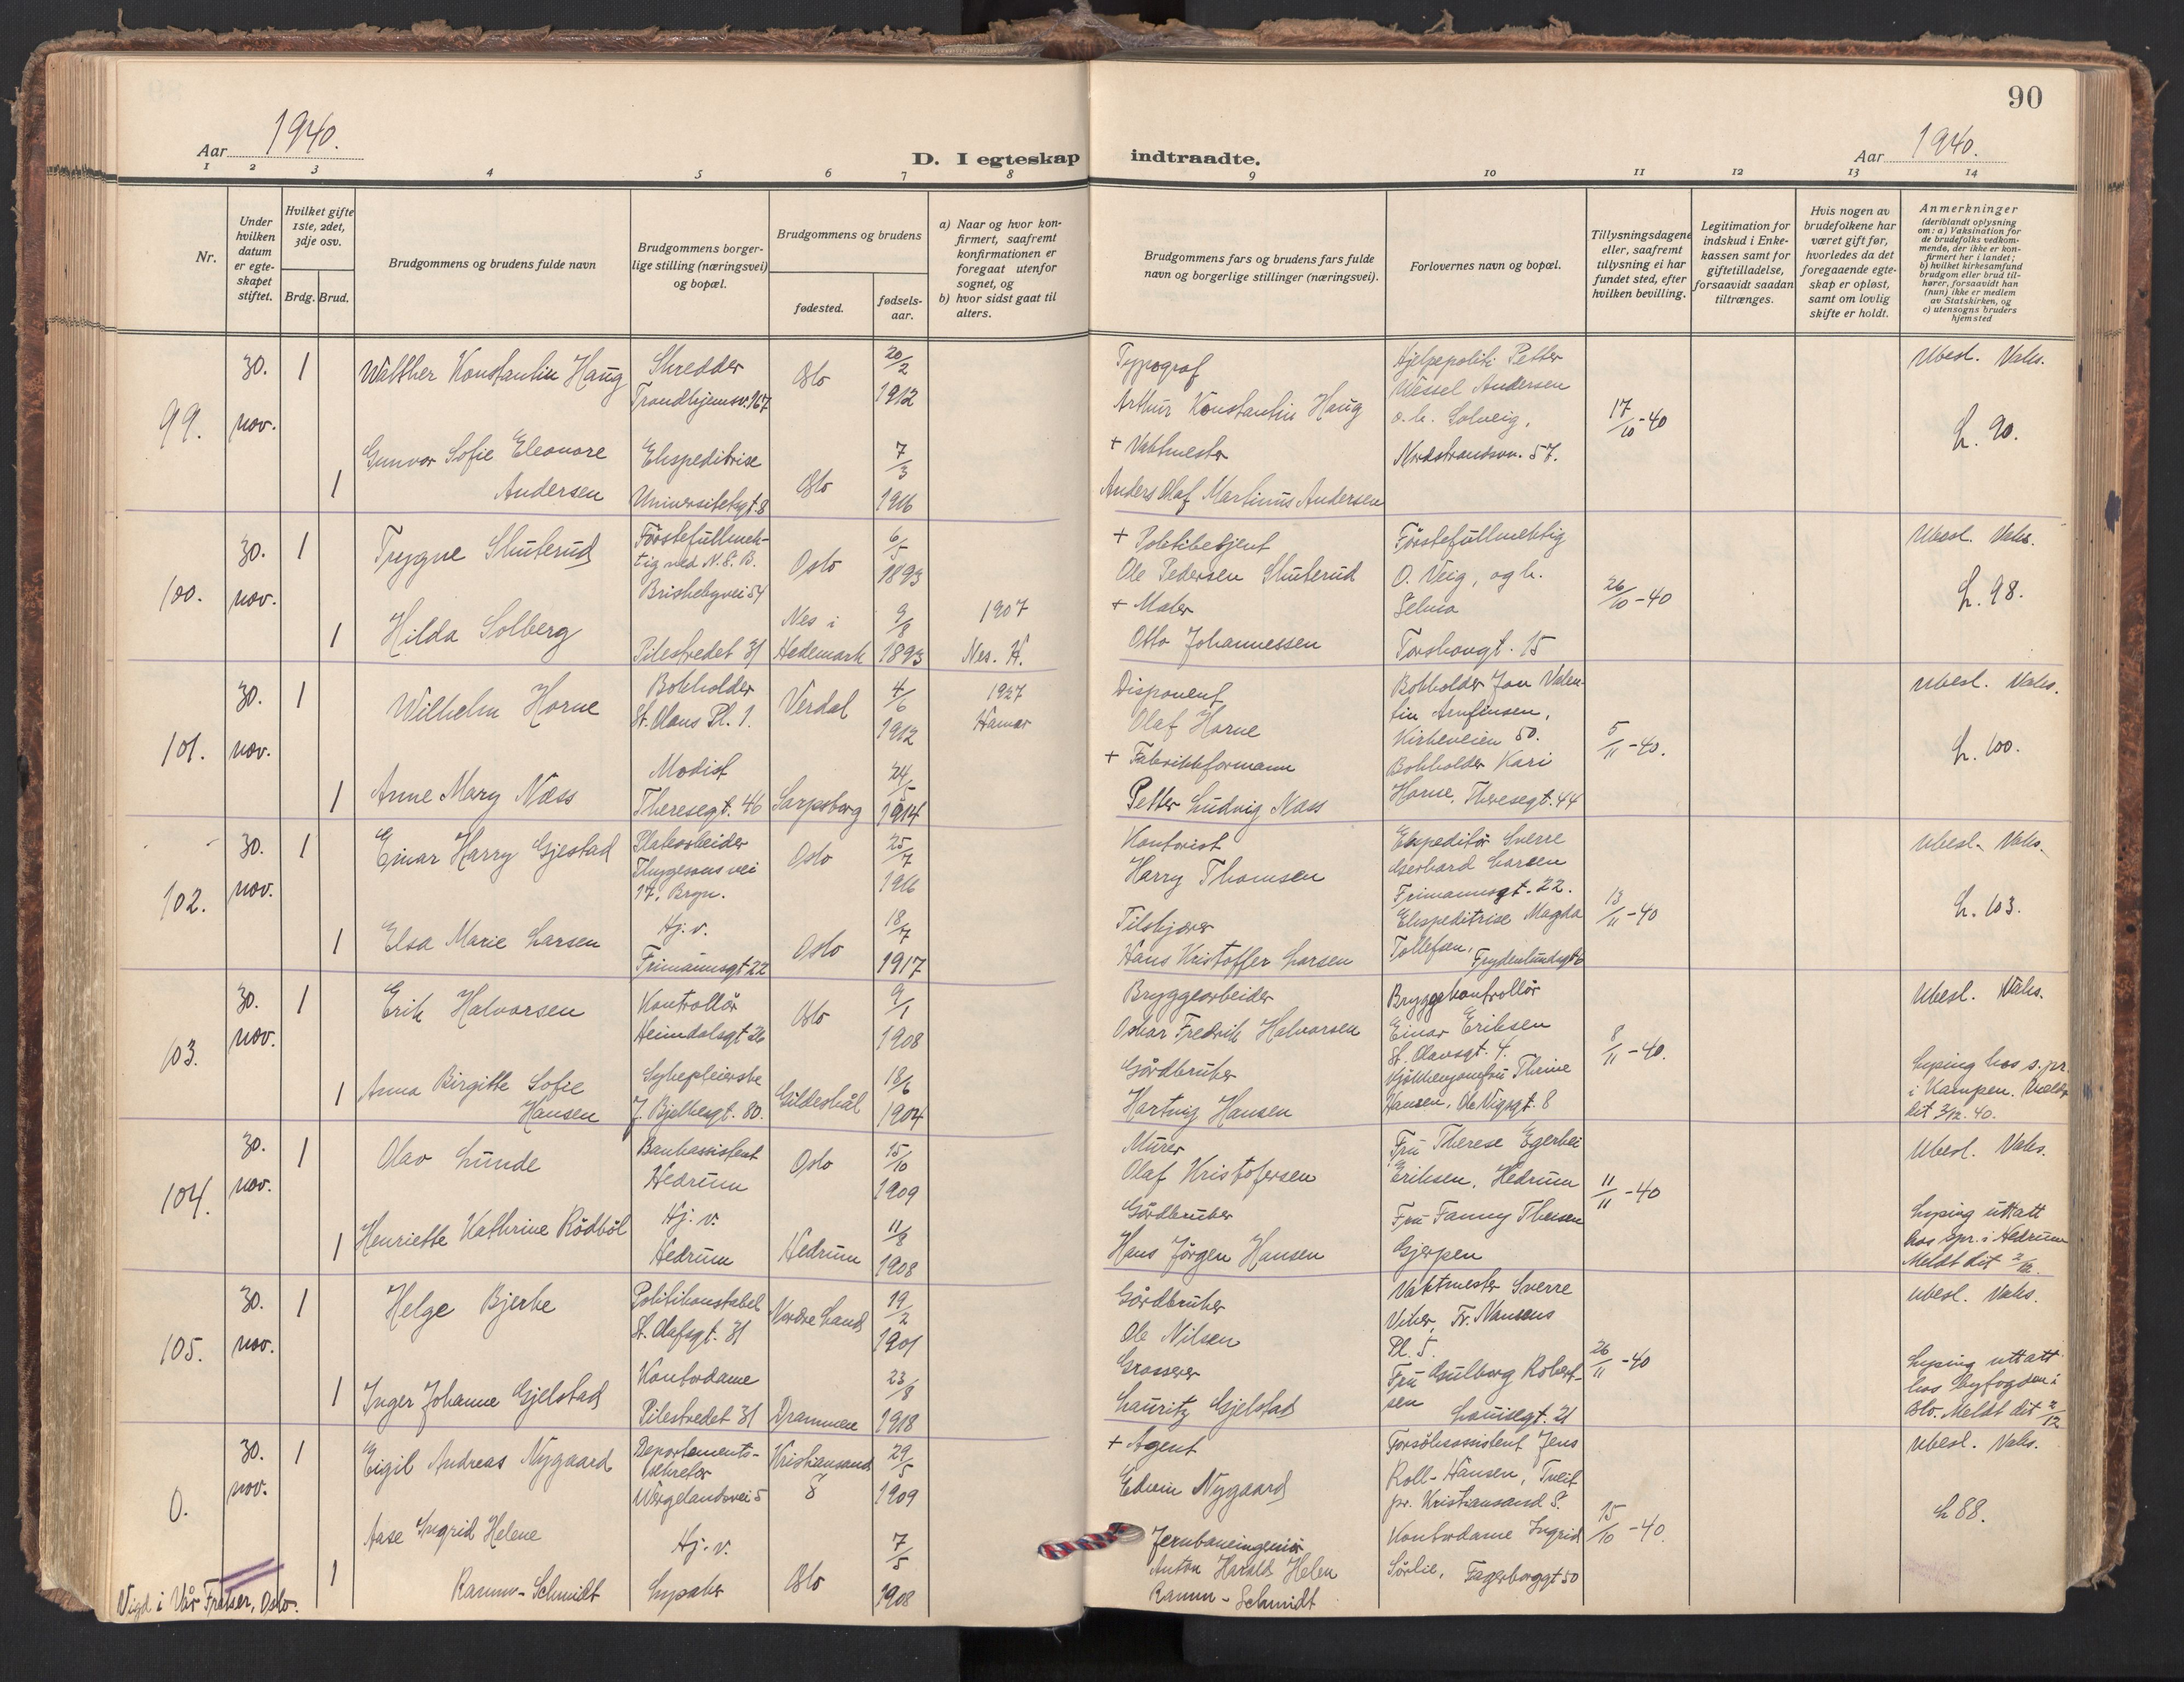 90
Aar 1940.
D. I egteskap indtraadte.
Aar 1940.
1 2 3 4 5 6 7 8 9 10 11 12 13 14
Nr.
Under hvilken datum er egteskapet stiftet.
Hvilket gifte 1ste, 2det, 3dje osv.
Brdg. Brud.
Brudgommens og brudens fulde navn
Brudgommens borgerlige stilling (næringsvei) og bopæl.
Brudgommens og brudens
fødested.
fødselsaar.
a) Naar og hvor konfirmert, saafremt konfirmationen er foregaat utenfor sognet, og
b) hvor sidst gaat til alters.
Brudgommens fars og brudens fars fulde navn og borgerlige stillinger (næringsvei).
Forlovernes navn og bopæl.
Tillysningsdagene eller, saafremt tillysning ei har fundet sted, efter hvilken bevilling.
Legitimation for indskud i Enkekassen samt for giftetilladelse, forsaavidt saadan tiltrænges.
Hvis nogen av brudefolkene har været gift før, hvorledes da det foregaaende egteskap er opløst, samt om lovlig skifte er holdt.
Anmerkninger
(deriblandt oplysning om: a) Vaksination for de brudefolks vedkommende, der ikke er konfirmert her i landet;
b) hvilket kirkesamfund brudgom eller brud tilhører, forsaavidt han (hun) ikke er medlem av Statskirken, og
c) utensogns bruders hjemsted
99. 30. nov. 1
Walther Konstantin Haug
Skredder
Trondhjemsv. 167
Oslo
20/2 1912
Typograf
Arthur Konstantin Haug
Hjelpepoliti Petter
Wessel Andersen
o. h. Solveig,
Nordstrandsvn. 57.
17/10-40
Ubesl. Vaks.
L. 90.
1
Gunvor Sofie Eleonore
Andersen
Ekspeditrise
Universitetsgt. 8
Oslo
7/3 1916
+ Vaktmester
Anders Olaf Martinus Andersen
100. 30. nov. 1
Trygve Skuterud
Förstefullmek-
tig ved N.S.B.
Briskebyvei 54
Oslo
6/5 1893
+ Politibetjent
Ole Pedersen Skuterud
Förstefullmektig
O. Veig, og h.
Selma
Torshovgt. 15
26/10-40
Ubesl. Vaks.
L. 98.
1
Hilda Solberg
Pilestredet 31
Nes i
Hedemark
9/8 1893
1907
Nes. H.
+ Maler
Otto Johannessen
101. 30. nov. 1
Wilhelm Horne
Bokholder
St. Olavs Pl. 1.
Verdal
4/6 1912
1927
Hamar
Disponent
Olaf Horne
Bokholder Jon Valen-
tin Arnfinsen,
Kirkeveien 50.
Bokholder Kari
Horne, Theresegt. 44
5/11-40.
Ubesl. Vaks.
L. 100.
1
Anne Mary Næss
Modist
Theresegt. 46
Sarpsborg
24/5 1914
+ Fabrikkformann
Petter Ludvig Næss
102. 30. nov. 1
Einar Harry Gjestad
Platearbeider
Thygesons vei
17, Bryn.
Oslo
25/7 1916
Kontorist
Harry Thomsen
Ekspeditör Sverre
Gerhard Larsen
Frimannsgt. 22.
Ekspeditrise Magda
Tollefsen,
Frydenlundsgt 6
13/11-40
Ubesl. Vaks.
L. 103.
1
Elsa Marie Larsen
Hj. v.
Frimannsgt 22
Oslo
18/7 1917
Tilskjærer
Hans Kristoffer Larsen
103. 30. nov. 1
Erik Halvorsen
Kontrollör
Heimdalsgt 26
Oslo
9/1 1908
Bryggearbeider
Oskar Fredrik Halvorsen
Bryggekontrollör
Einar Eriksen
St. Olavsgt. 4.
Kjökkenjomfru Thrine
Hansen, Ole Vigsgt. 8
8/11-40.
Ubesl. Vaks.
Lysing hos s.pr.
i Kampen. Meldt
dit 3/12. 40.
1
Anna Birgitte Sofie
Hansen
Sykepleierske
J. Bjelkesgt. 80.
Gildeskål
18/6 1904
Gårdbruker
Hartvig Hansen
104. 30. nov. 1
Olav Lunde
Bankassistent
Hedrum
Oslo
15/10 1909
Murer
Olaf Kristofersen
Fru Therese Egerbei
Eriksen, Hedrum
Fru Fanny Thesen
Gjerpen
11/11-40
Ubesl. Vaks.
Lysing uttatt
hos spr. i Hedrum
Meldt dit 2/12.
1
Henriette Kathrine Rödböl
Hj. v.
Hedrum
Hedrum
11/8 1908
Gårdbruker
Hans Jörgen Hansen
105. 30. nov. 1
Helge Bjerke
Politikonstabel
St. Olafsgt. 31
Nordre Land
19/2 1901
Gårdbruker
Ole Nilsen
Vaktmester Sverre
Viker, Fr. Nansens
Pl. 5.
Fru Gulborg Robert-
sen
Louisegt. 21
26/11-40
Ubesl. Vaks.
Lysing uttatt
hos byfogden i
Oslo. Meldt dit 2/12
1
Inger Johanne Gjelstad
Kontordame
Pilestredet 31
Drammen
23/8 1918
Grosserer
Lauritz Gjelstad
0. 30. nov. 1
Eigil Andreas Nygaard
Departements-
sekretær
Wergelandsvei 5
Kristiansand
S
29/5 1909
+ Agent
Edvin Nygaard
Forsöksassistent Jens
Roll-Hansen, Tveit
pr. Kristiansand S.
Kontordame Ingrid
Sörlie, Fagerborggt 50
15/10-40.
Ubesl. Vaks.
L 88.
1
Aase Ingrid Helene
Ramm-Schmidt
Hj. v.
Lysaker
Oslo
7/5 1908
Jernbaneingeniör
Anton Harald Helen
Ramm-Schmidt
Vigd i Vår Frelser, Oslo.